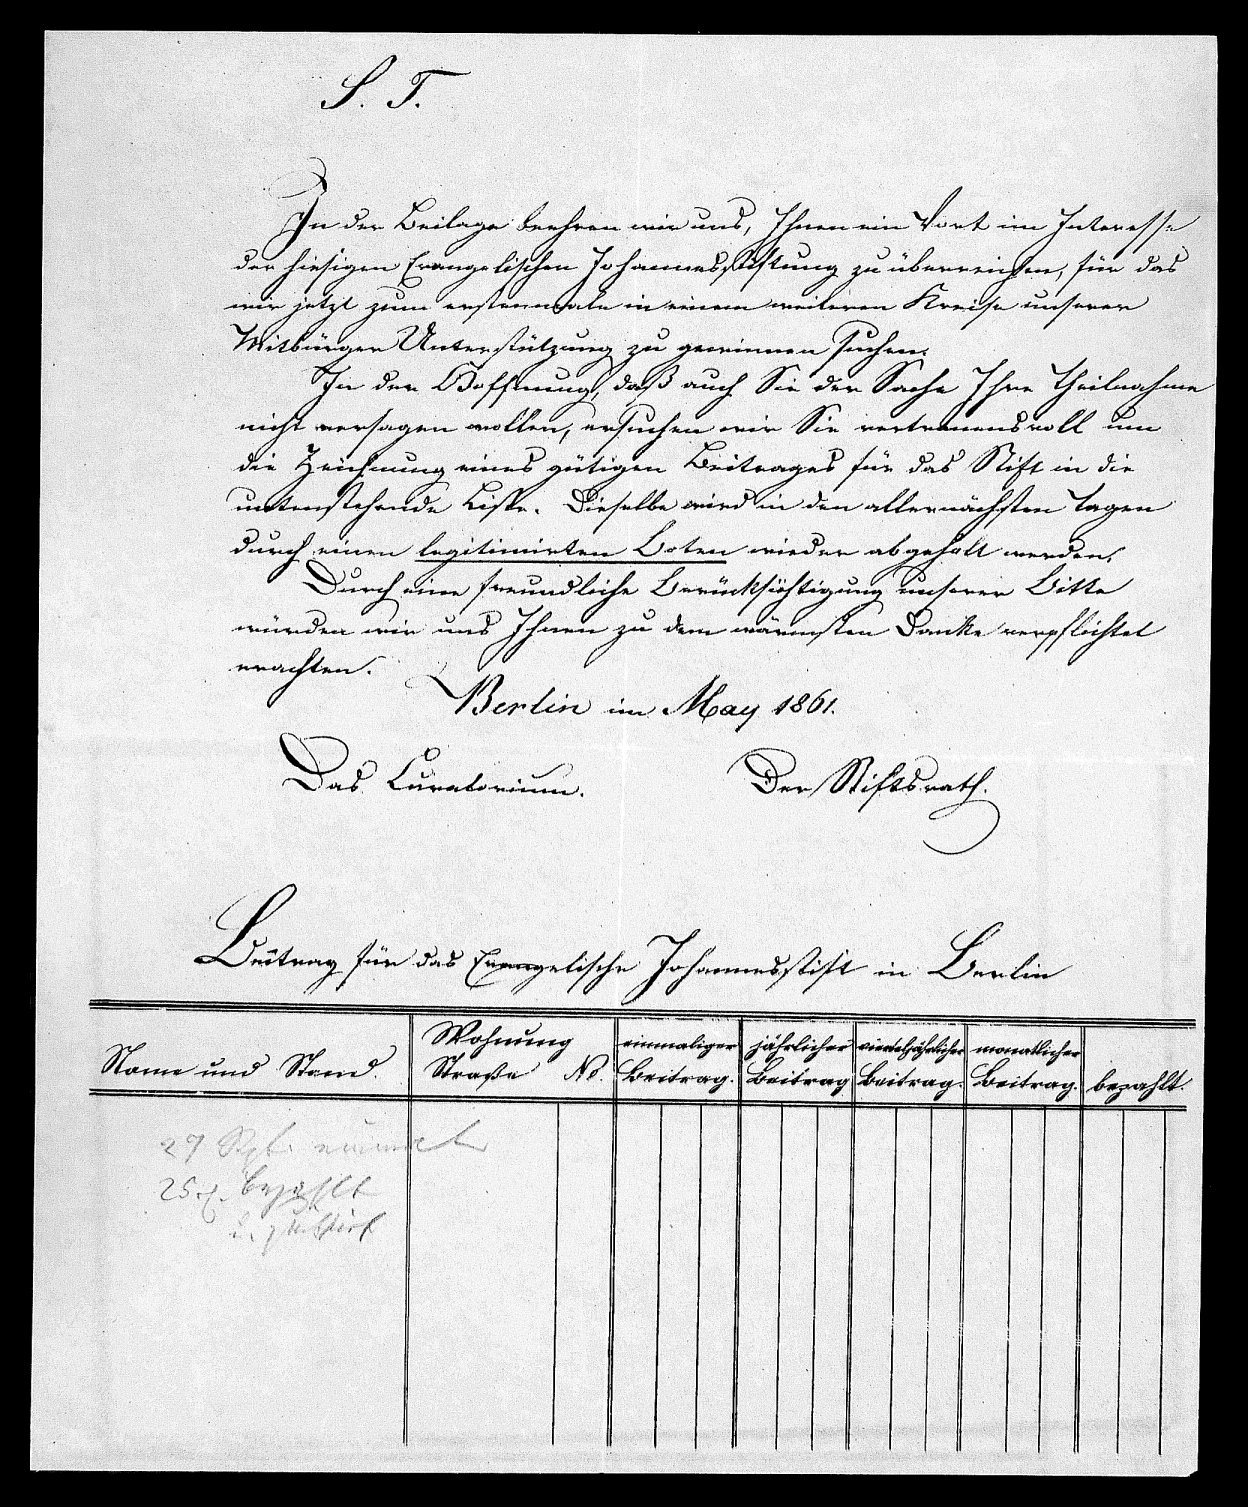 S. T.
In der Beilage beehren wir uns, Ihnen ein Wort im Interesse
der hiesigen Evangelischen Johannesstiftung zu überreichen, für das
wir jetzt zum erstenmale in einem weiteren Kreise unserer
Mitbürger Unterstützung zu gewinnen suchen.
In der Hoffnung, daß auch Sie der Sache Ihre Theilnahme
nicht versagen wollen, ersuchen wir Sie vertrauensvoll um
die Zeichnung eines gütigen Beitrages für das Stift in die
untenstehende Liste. Dieselbe wird in den allernächsten Tagen
durch einen legitimirten Boten wieder abgeholt werden.
Durch eine freundliche Berücksichtigung unserer Bitte
würden wir uns Ihnen zu dem wärmsten Danke verpflichtet
erachten.
Berlin im May 1861.
Das Curatorium. Der Stiftsrath.
Beitrag für das Evangelische Johannesstift in Berlin
Name und Stand.
Wohnung
Straße No.
einmaliger
Beitrag.
jährlicher
Beitrag
vierteljährlicher
Beitrag.
monatlicher
Beitrag.
bezahlt.
bezahlt